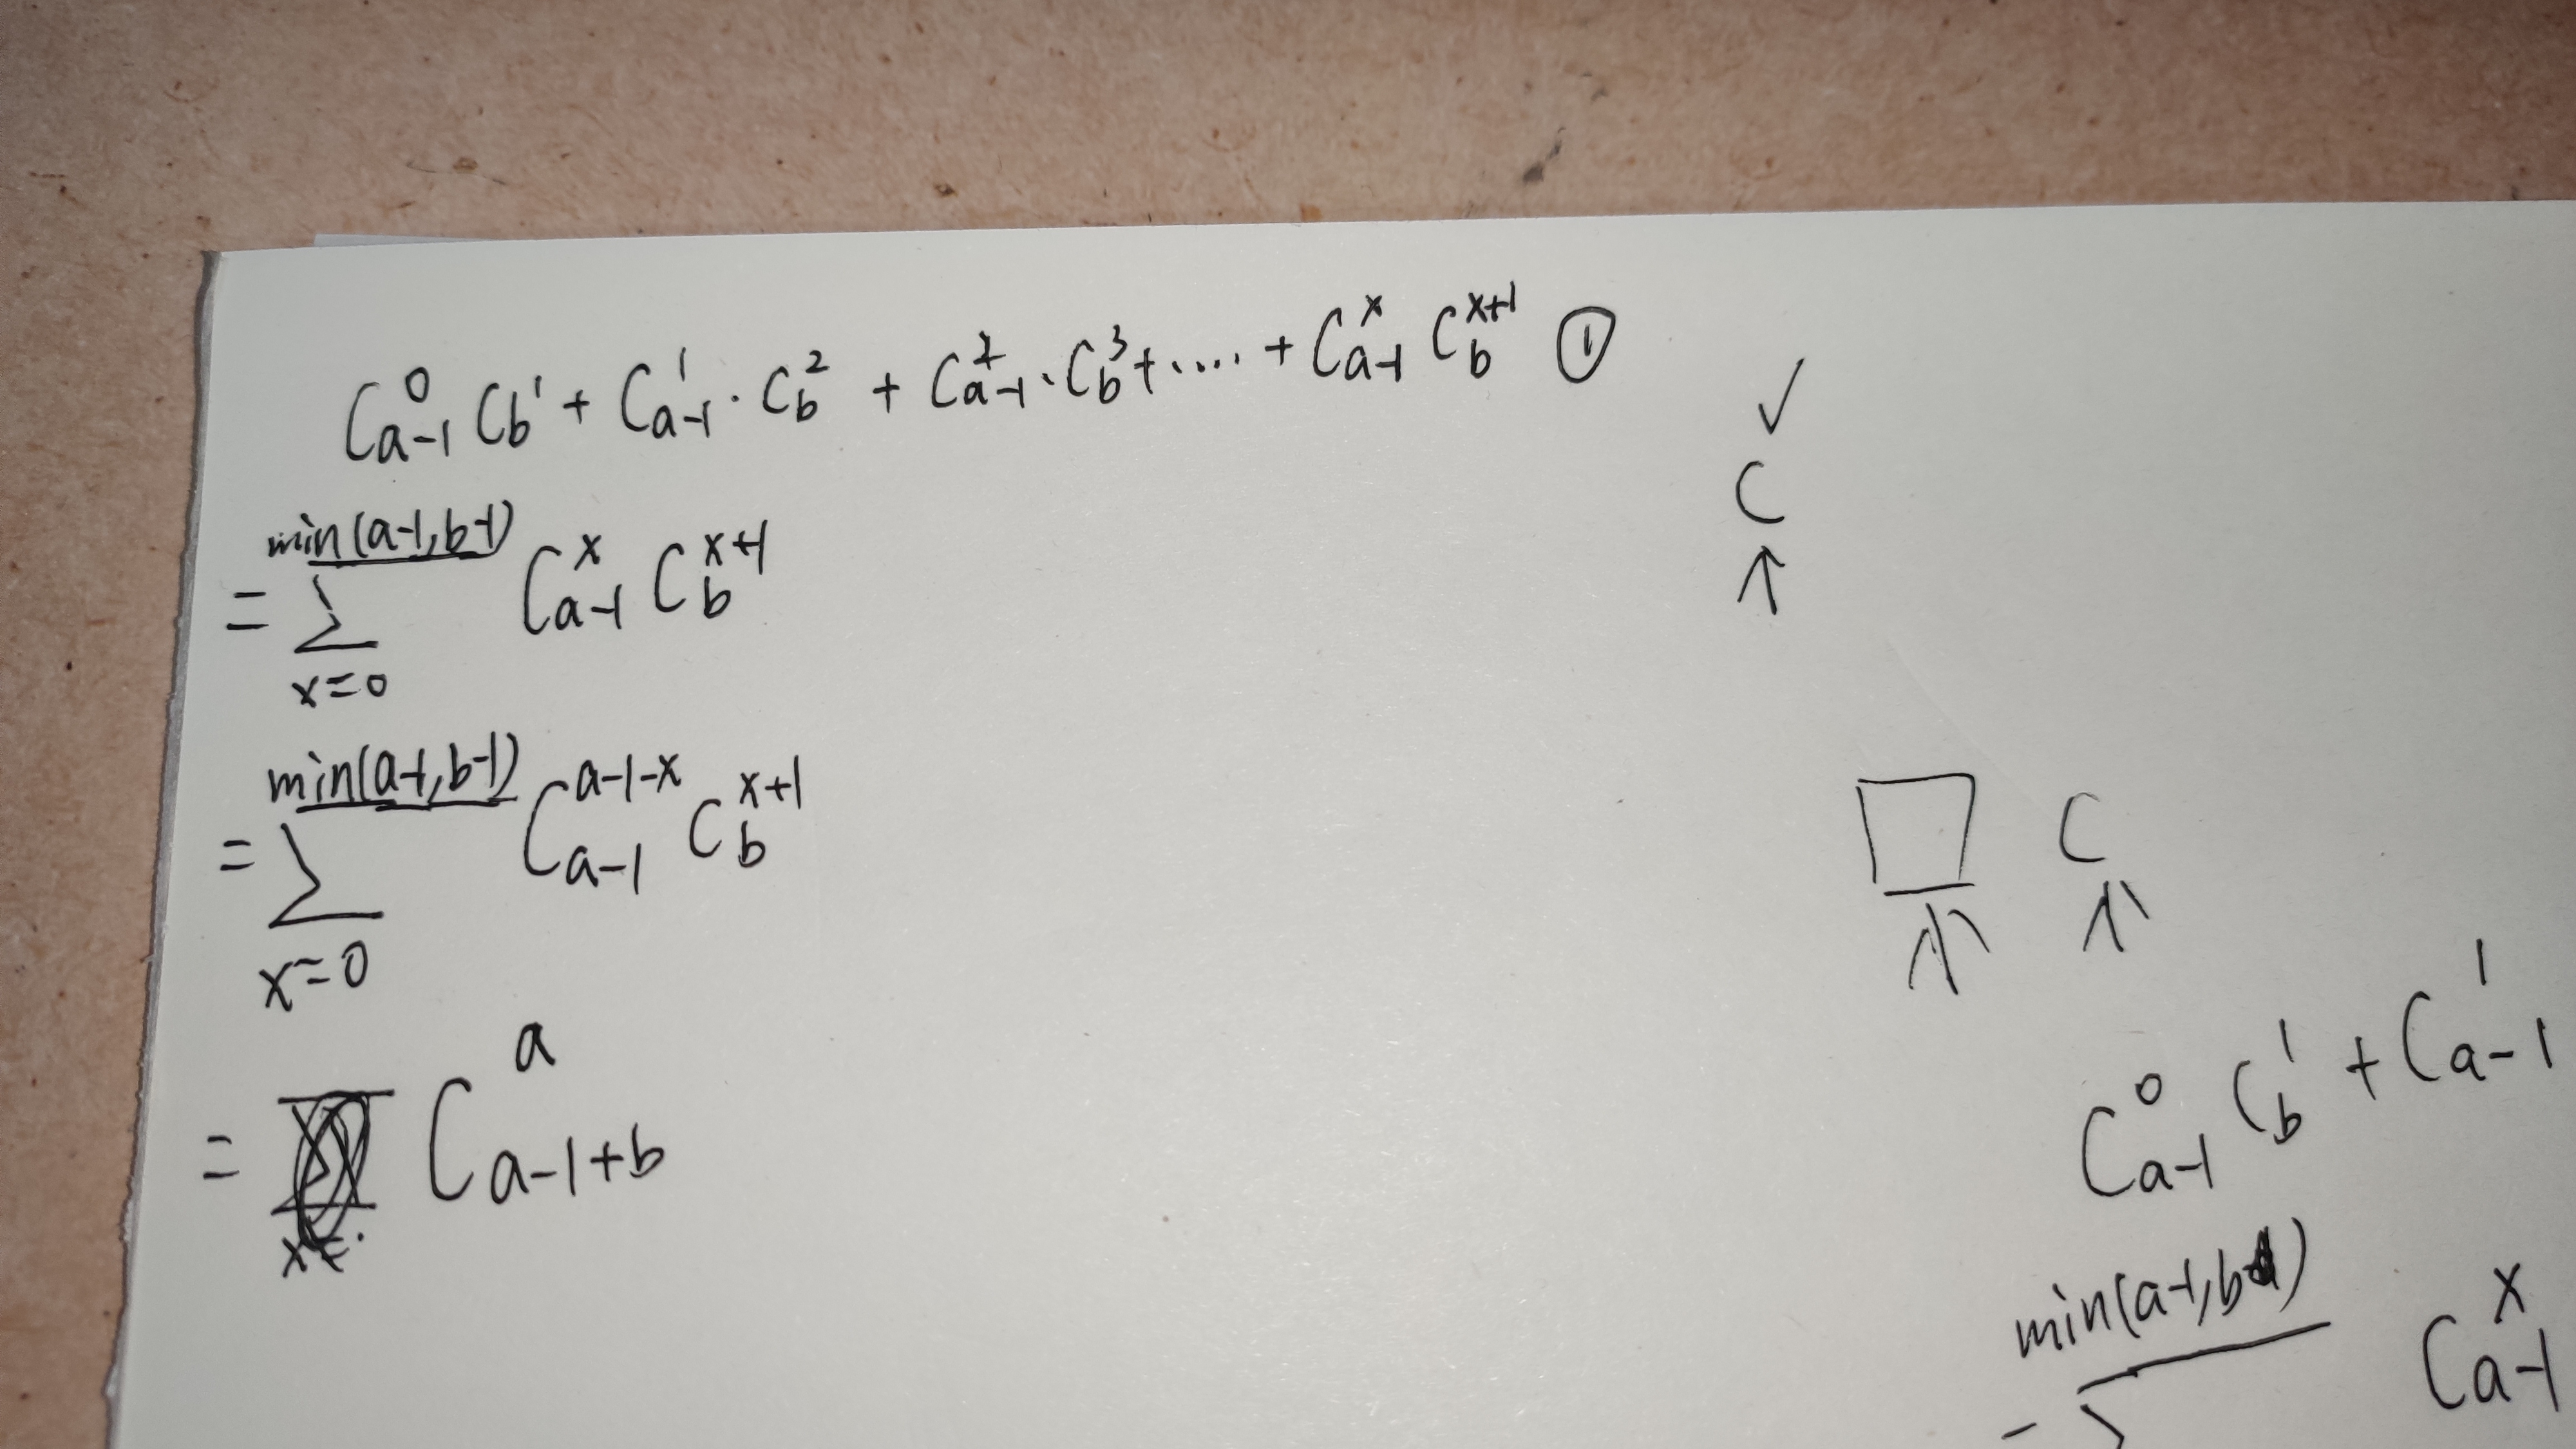 C_{a-1}^{0} C_b^{1} + C_{a-1}^{1} · C_b^{2} + C_{a-1}^{2} · C_b^{3} + .... + C_{a-1}^{x} C_b^{x+1} ①
✓
C
↑
= \sum_{x=0}^{min(a-1,b-1)} C_{a-1}^{x} C_b^{x+1}
= \sum_{x=0}^{min(a-1,b-1)} C_{a-1}^{a-1-x} C_b^{x+1}
C
= C_{a-1+b}^{a}
C_{a-1}^{0} C_b^{1} + C_{a-1}^{1}
min(a-1,b
C_{a-1}^{x}